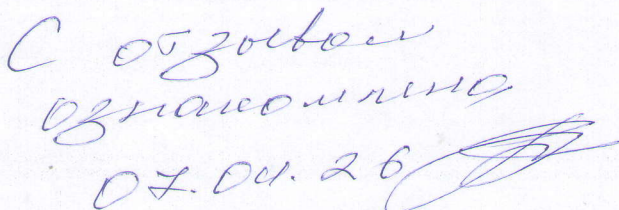 С отзывом
ознакомлена
07.04.26